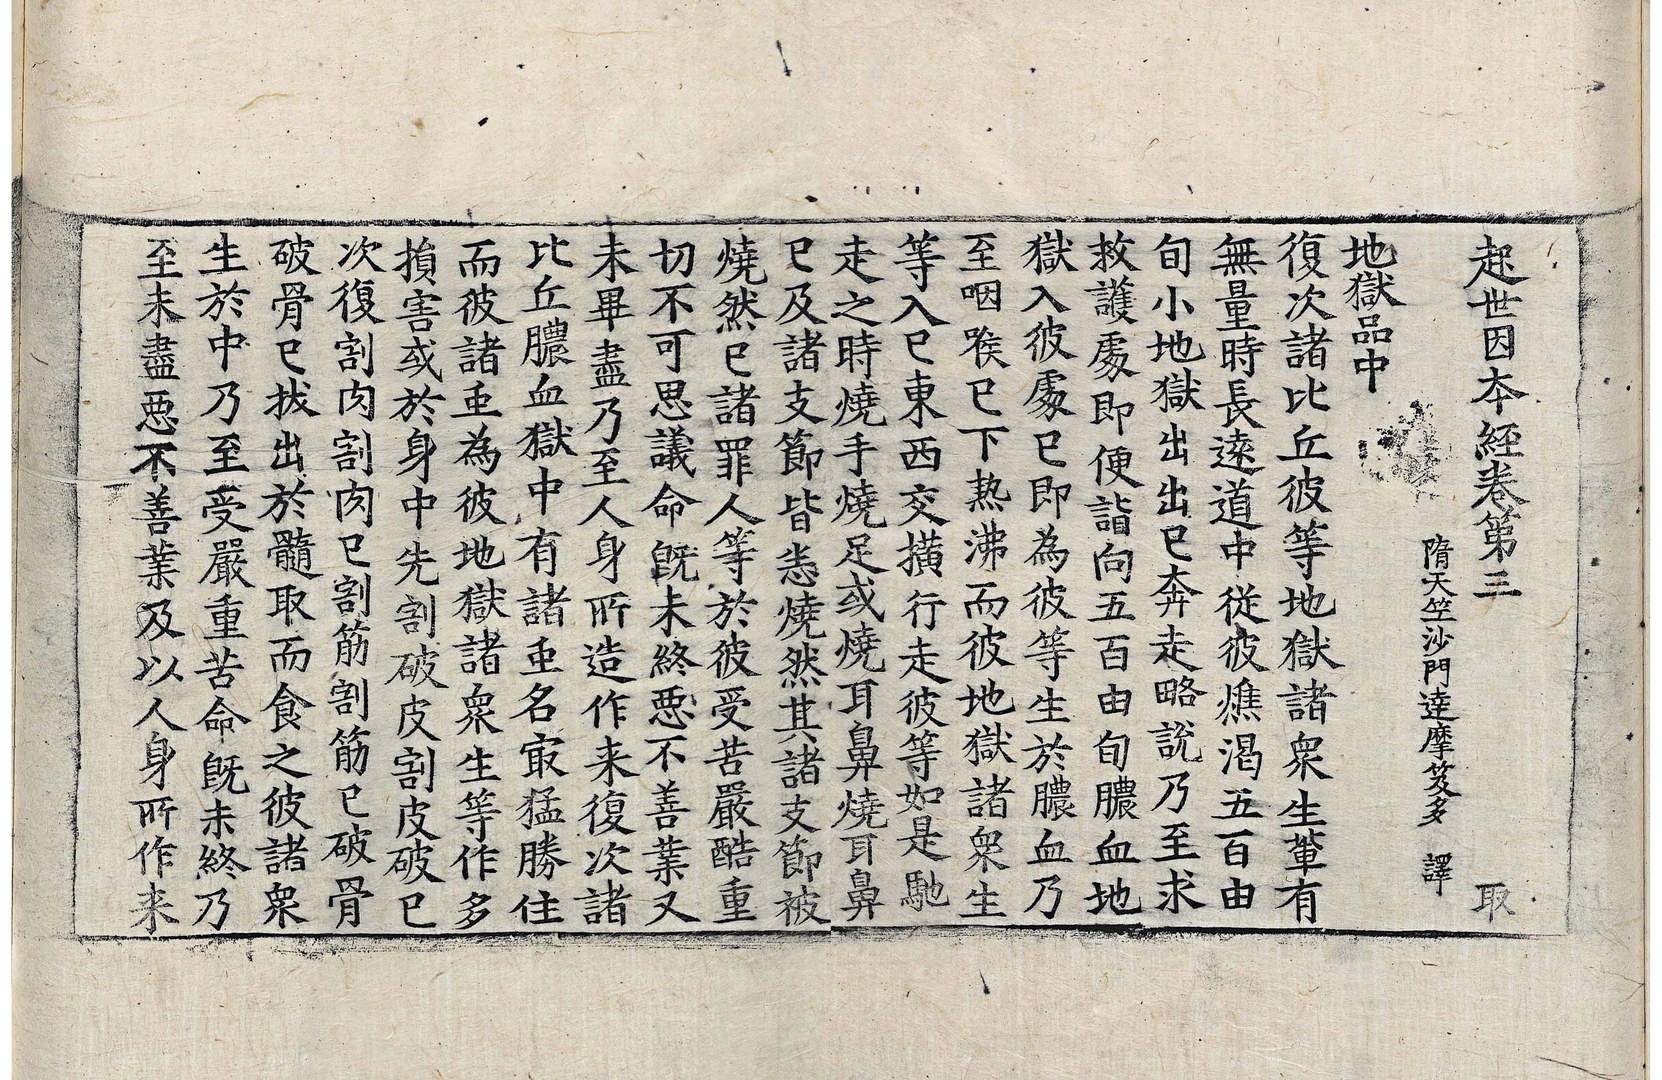 起世因本經卷第三 取
隋天竺沙門達摩笈多 譯
地獄品中
復次諸比丘彼等地獄諸衆生輩有
無量時長遠道中從彼燋渴五百由
旬小地獄出出已奔走略說乃至求
救護處即便詣向五百由旬膿血地
獄入彼處已即為彼等生於膿血乃
至咽喉已下熱沸而彼地獄諸衆生
等入已東西交橫行走彼等如是馳
走之時燒手燒足或燒耳鼻燒耳鼻
已及諸支節皆悉燒然其諸支節被
燒然已諸罪人等於彼受苦嚴酷重
切不可思議命既未終惡不善業又
未畢盡乃至人身所造作来復次諸
比丘膿血獄中有諸虫名㝡猛勝住
而彼諸虫為彼地獄諸衆生等作多
損害或於身中先割破皮割皮破已
次復割肉割肉已割筋割筋已破骨
破骨已拔出於髓取而食之彼諸衆
生於中乃至受嚴重苦命既未終乃
至未盡惡不善業及以人身所作来